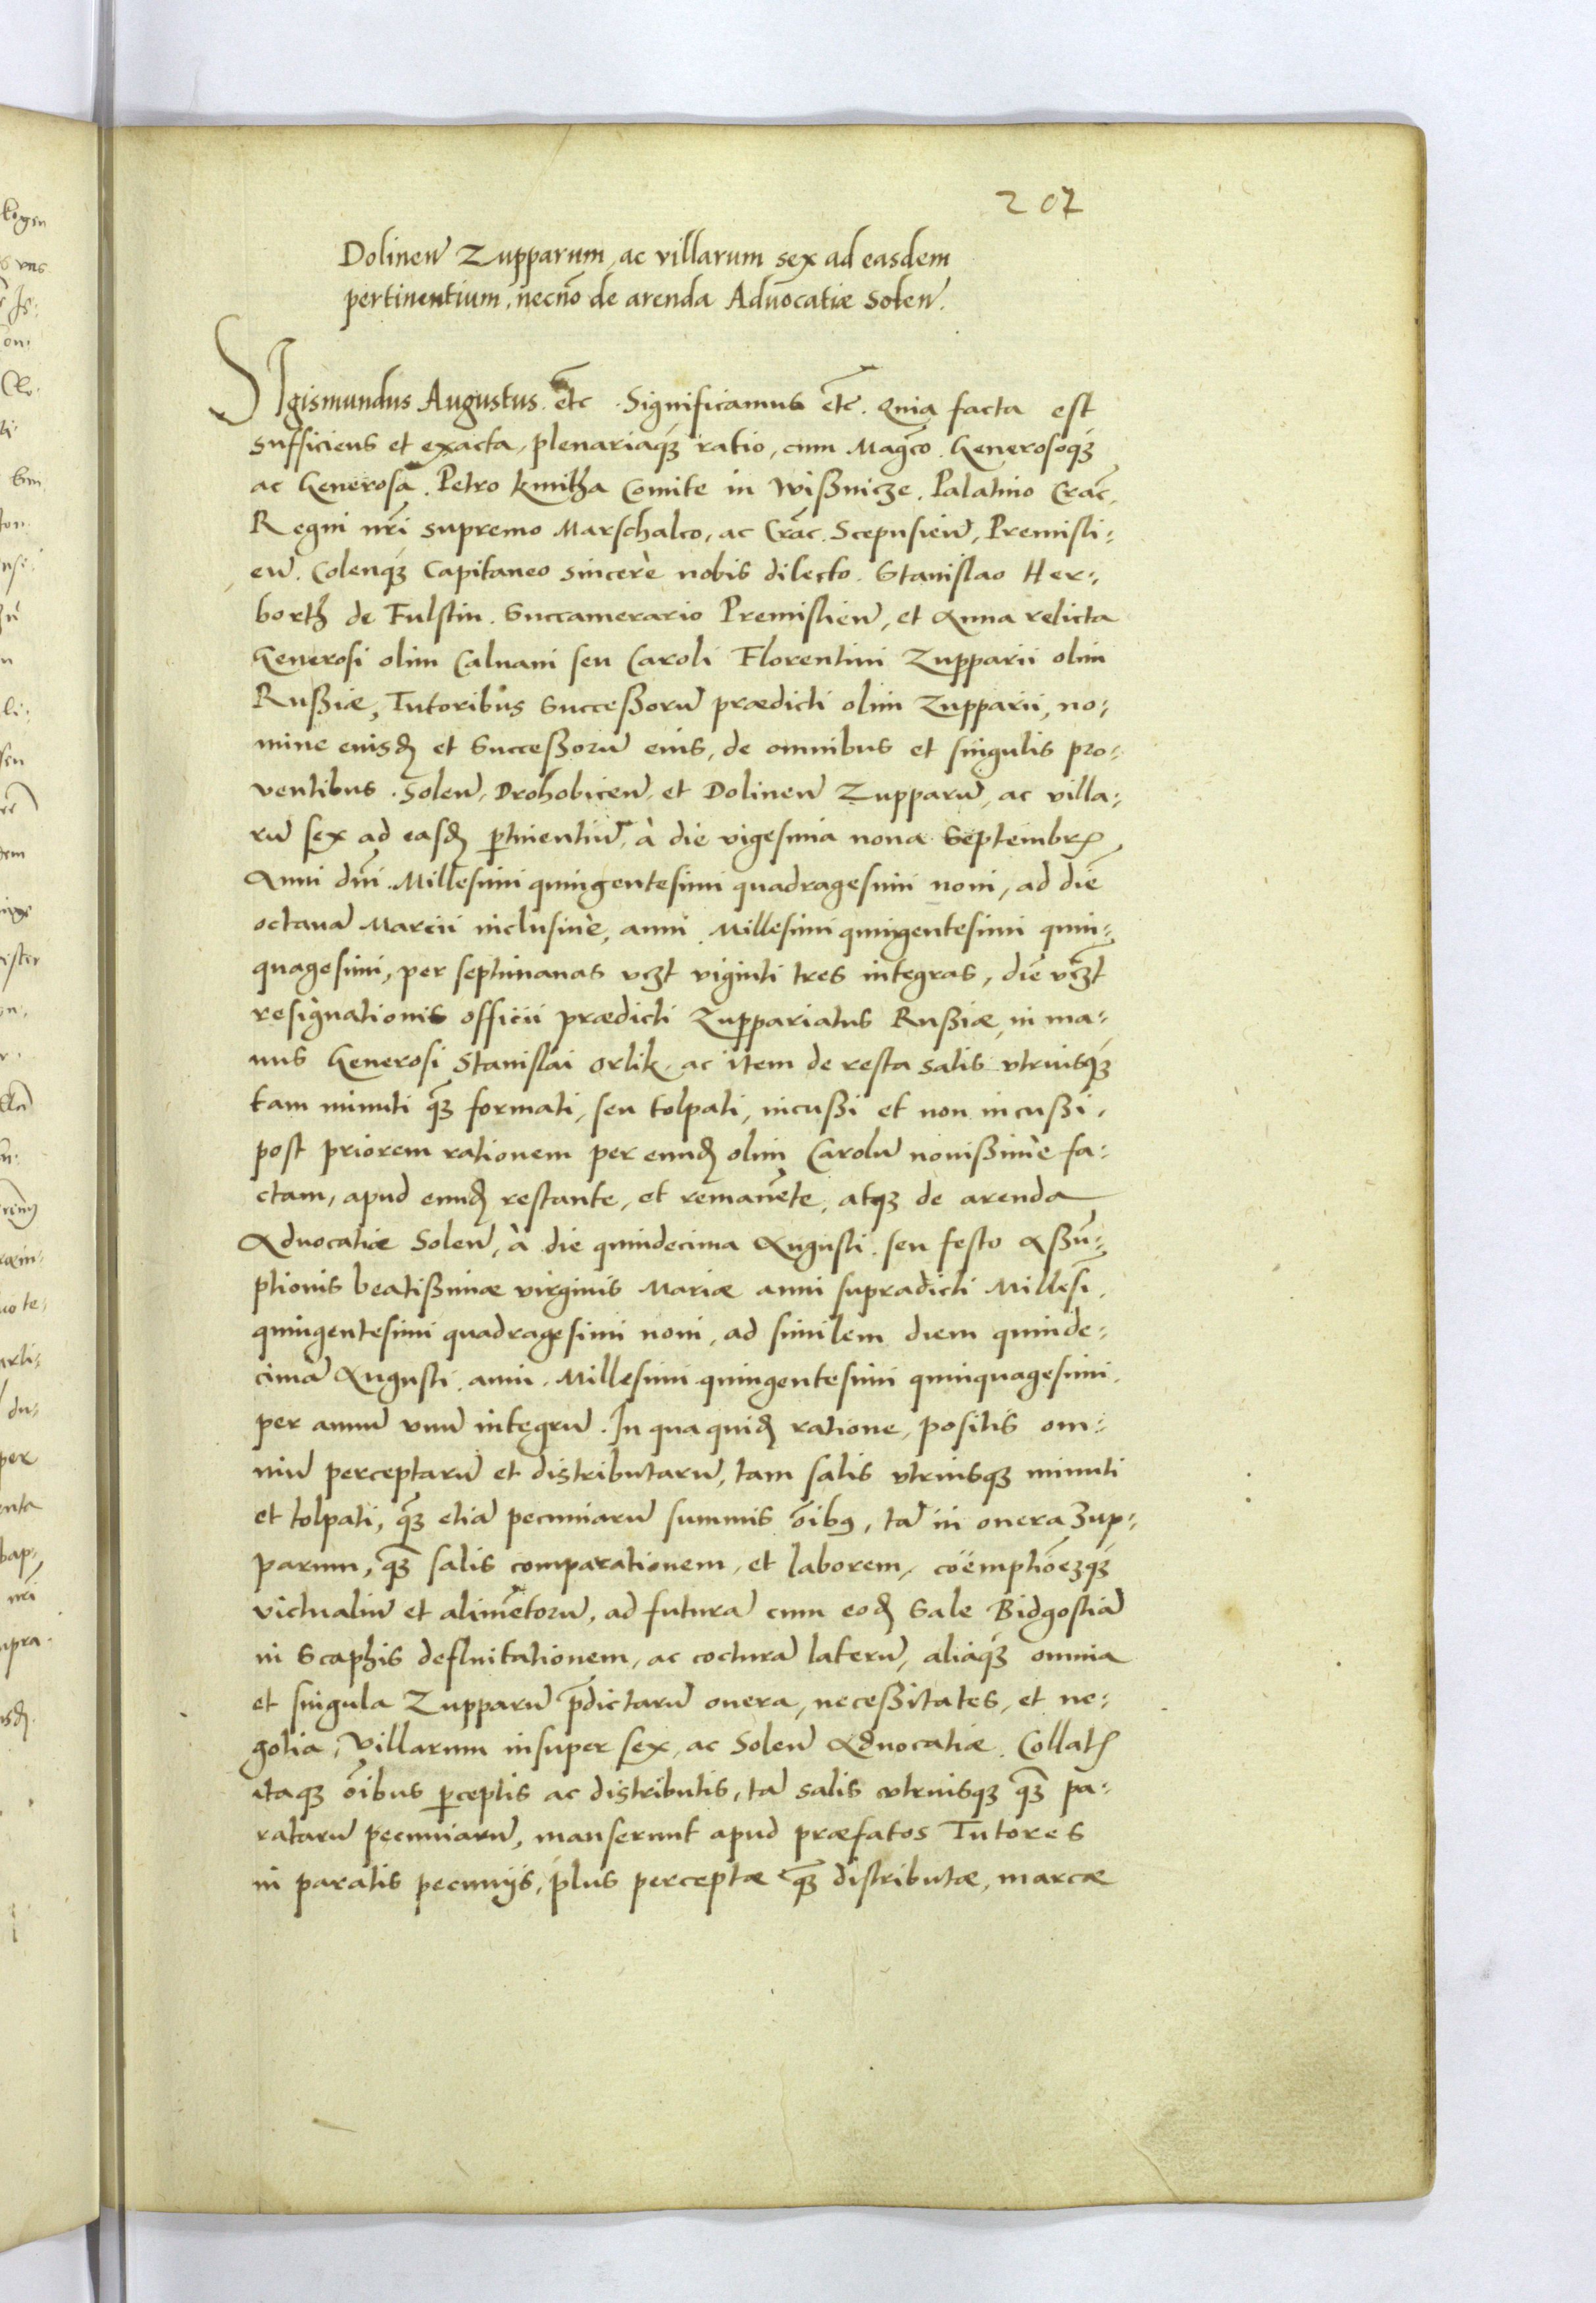 207
Dolineñ Zupparum, ac villarum sex ad easdem
pertinentium, necnō de arenda Aduocatiæ Soleñ.
SIgismundus Augustus. etc̄. Significamus etc̄. Quia facta est
sufficiens et exacta, plenariaq́ꝫ ratio, cum Mag̃co. Generosoq́ꝫ
ac Generosa. Petro kmitha Comite in Wißnicze. Palatino Crac̄,
Regni nr̃i supremo Marschalco, ac Crac̄. Scepusieñ, Premisli:
eñ. Colenq́ꝫ Capitaneo sincerè nobis dilecto. Stanislao Her:,
borth de Fulstin. Succamerario Premislieñ, et Anna relicta
Generosi olim Caluani seu Caroli Florentini Zupparii olim
Rußiæ, Tutoribus Succeßorũ prædicti olim Zupparii, no:
mine eiusđ et Succeßorũ eius, de omnibus et singulis pro:
ventibus. Soleñ, Drohobiceñ, et Dolineñ Zupparũ, ac villa:
rũ sex ad easđ ꝑtinentiũ, à die vigesima nona Septembrꝭ
Anni dñi. Millesimi quingentesimi quadragesimi noni, ad diē
octauā Marcii inclusiuè, anni. Millesimi quingentesimi quin:
quagesimi, per septimanas vcꝫt viginti tres integras, diē vcꝫt
resignationis officii prædicti Zuppariatus Rußiæ, in ma:
nus Generosi Stanislai Orlik, ac item de resta salis vtriusq́ꝫ
tam minuti q̃ꝫ formati, seu tolpati, incußi et non incußi.
post priorem rationem per eunđ olim Carolũ nouißimè fa:
ctam, apud eunđ restante, et remanēte, atqꝫ de arenda
Aduocatiæ Soleñ, à die quindecima Augusti. seu festo Aßũ:
ptionis beatißimæ virginis Mariæ anni supradicti Millesi.
quingentesimi quadragesimi noni, ad similem diem quinde:
cimā Augusti. anni. Millesimi quingentesimi quinquagesimi.
per annũ vnũ integrũ. In qua quiđ ratione, positis om:
niũ perceptarũ et distributarũ, tam salis vtriusqꝫ minuti
et tolpati, q̃ꝫ etiā pecuniarũ summis õibꝯ, tā in onera Zup:
parum, q̃ꝫ salis comparationem, et laborem, coëmptiõeꝫq́ꝫ
victualiũ et alimētorũ, ad futurā cum eođ Sale Bidgostiā
in Scaphis defluitationem, ac cocturā laterũ, aliaq́ꝫ omnia
et singula Zupparũ p̃dictarũ onera, neceßitates, et ne:
gotia, Villarum insuper sex, ac Soleñ Aduocatiæ. Collatꝭ
itaqꝫ õibus ꝑceptis ac distributis, tā salis vtriusqꝫ q̃ꝫ pa:
ratarũ pecuniarũ, manserunt apud præfatos Tutores
in paratis pecunijs, plus perceptæ q̃ꝫ distributæ, marcæ